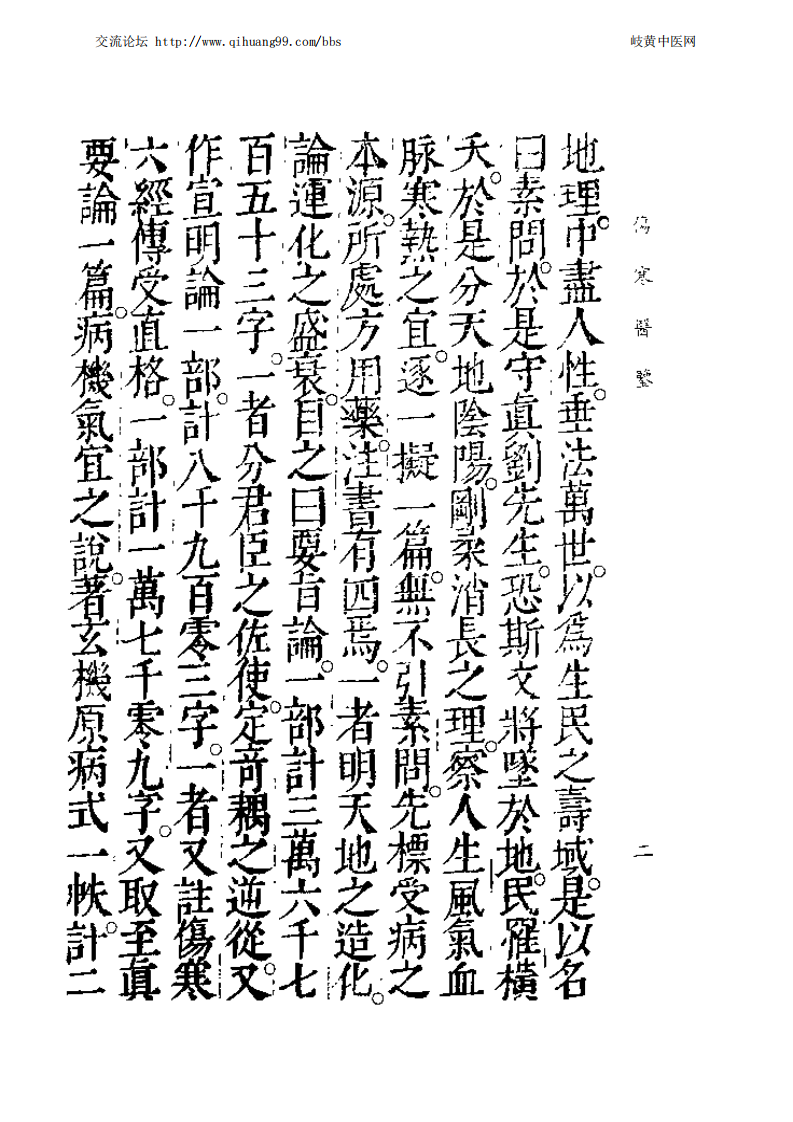 交流论坛 http://www.qihuang99.com/bbs 岐黄中医网
傷寒醫鑒 二
地理。中盡人性。垂法萬世。以爲生民之壽域。是以名
曰素問。於是守眞劉先生。恐斯文將墜於地。民罹橫
夭。於是分天地陰陽。剛柔消長之理。察人生風氣血
脉寒熱之宜。逐一擬一篇。無不引素問。先標受病之
本源。所處方用藥。注書有四焉。一者明天地之造化。
論運化之盛衰。目之曰要旨論。一部計三萬六千七
百五十三字。一者分君臣之佐使。定竒耦之逆從。又
作宣明論一部。計八千九百零三字。一者又註傷寒
六經傳受直格。一部計一萬七千零九字。又取至眞
要論一篇。病機氣宜之說。著玄機原病式一帙。計二